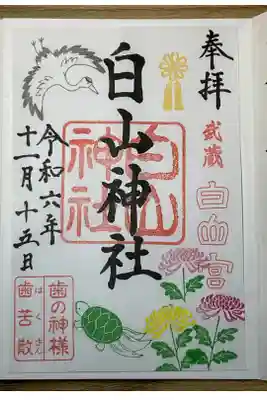 奉拝
武蔵
白山宮
白山神社
白山
神社
令和六年
十一月十五日
歯の神様
はくさん
歯苦散